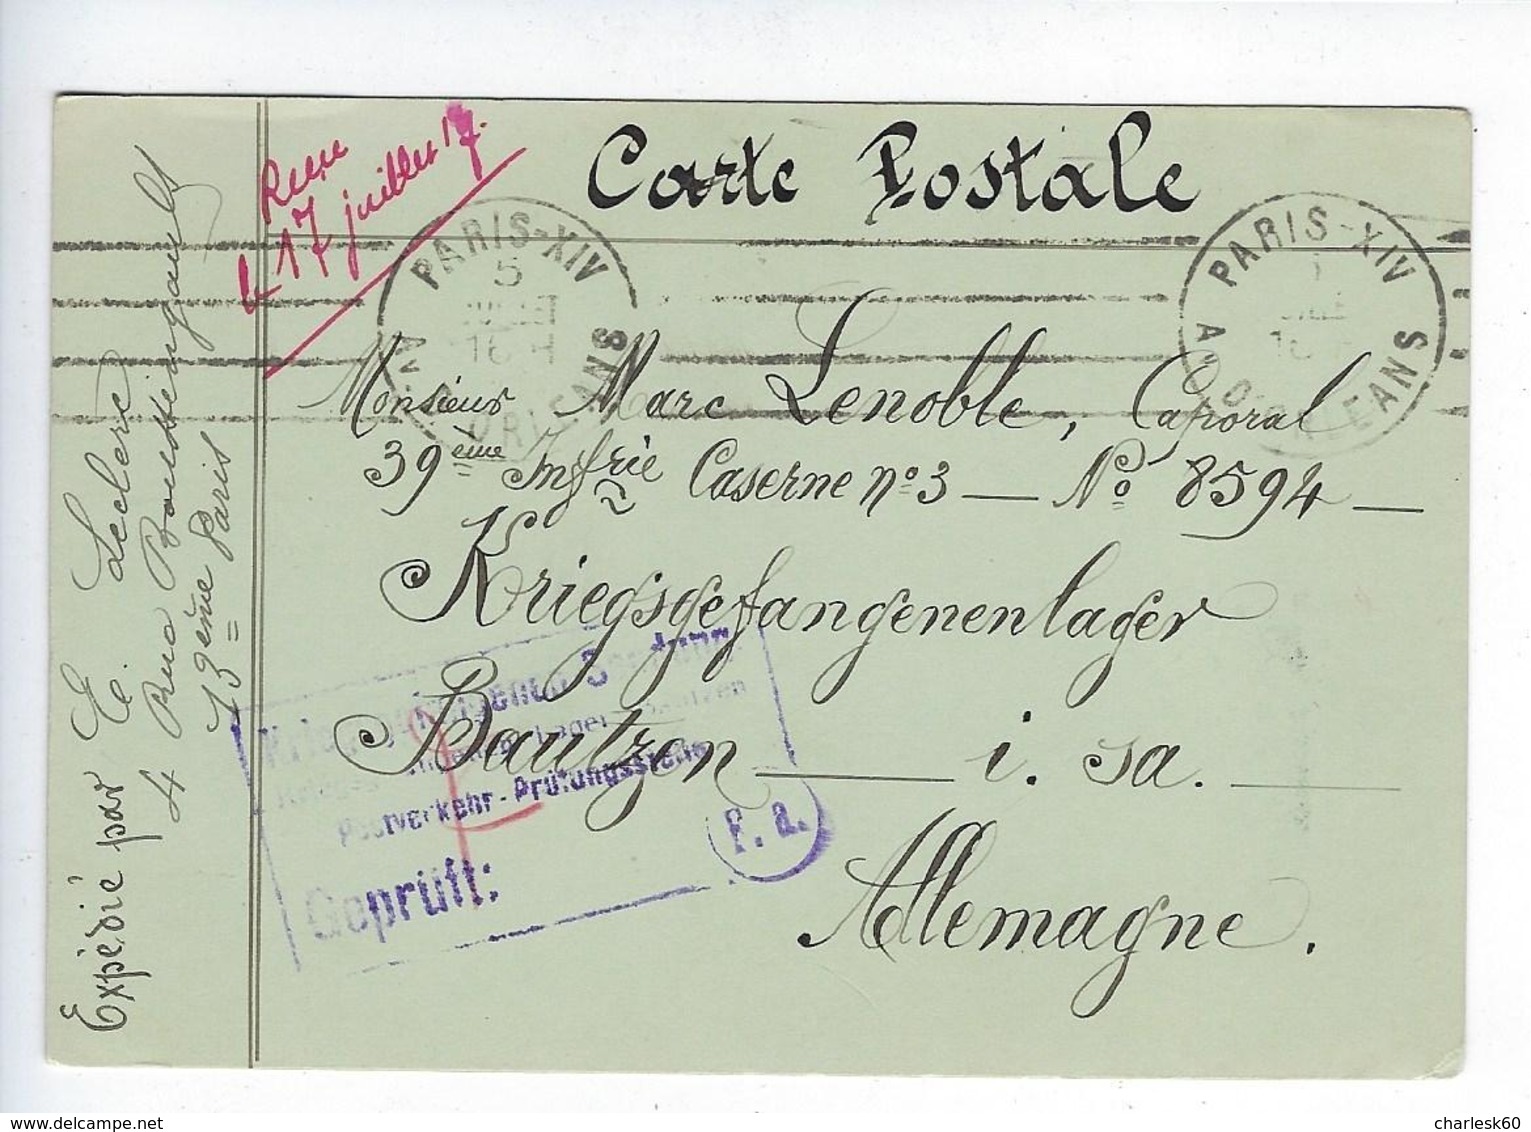 Carte Postale
Reçue
le 17 juillet 17.
PARIS-XIV
5
JUILLET
16 H
AV. D'ORLEANS
PARIS-XIV
AV. D'ORLEANS
Monsieur Marc Lenoble, Caporal
39ème Infrie Caserne n°3 — No 8594 —
Kriegsgefangenenlager
Bautzen — i. sa. —
Allemagne.
Expédié par E. Leclerc
4 Rue Boussingault
13ème Paris
Kriegsgefangenen-Sendung
Bautzen
Postverkehr-Prüfungsstelle
Geprüft:
F. a.
charlesk60